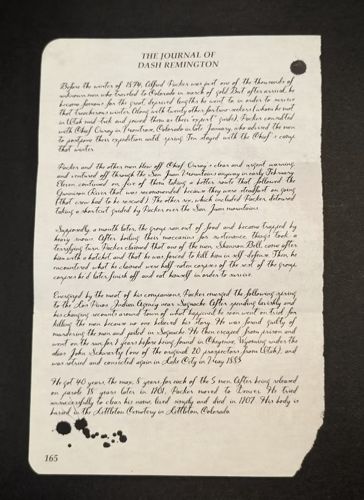 THE JOURNAL OF
DASH REMINGTON
Before the winter of 1874, Alfred Packer was just one of the thousands of
unknown men who traveled to Colorado in search of gold. But after arrival, he
became famous for the great, depraved lengths he went to in order to survive
that treacherous winter. Along with twenty other fortune-seekers (whom he met
in Utah and took and joined them as their "expert" guide), Packer consulted
with Chief Ouray in Montrose, Colorado in late January, who advised the men
to postpone their expedition until spring. Ten stayed with the Chief's camp
that winter.
Packer and the other men blew off Chief Ouray's clear and urgent warning
and ventured off through the San Juan Mountains anyway in early February.
Eleven continued on, five of them taking a better route that followed the
Gunnison River that was recommended because they were steadfast on going
(that crew had to be rescued). The other six, which included Packer, detoured
taking a shortcut guided by Packer over the San Juan mountains.
Supposedly, a month later, the group ran out of food and became trapped by
heavy snow. After boiling their moccasins for sustenance, things took a
terrifying turn. Packer claimed that one of the men, Shannon Bell, came after
him with a hatchet, and that he was forced to kill him in self-defense. Then he
encountered what he claimed were half-eaten corpses of the rest of the group,
corpses he'd later finish off and eat himself in order to survive.
Energized by the meat of his companions, Packer emerged the following spring
to the Los Pinos Indian Agency near Saguache. After spending lavishly and
his changing accounts around town of what happened, he soon went on trial for
killing the men because no one believed his story. He was found guilty of
murdering the men and jailed in Saguache. He then escaped from prison and
went on the run for 9 years before being found in Cheyenne, Wyoming under the
alias John Schwartze (one of the original 20 prospectors from Utah), and
was retried and convicted again in Lake City in May 1883.
He got 40 years, the max, 8 years for each of the 5 men. After being released
on parole 18 years later in 1901, Packer moved to Denver. He tried
unsuccessfully to clear his name, lived simply and died in 1907. His body is
buried in the Littleton Cemetery in Littleton, Colorado.
165